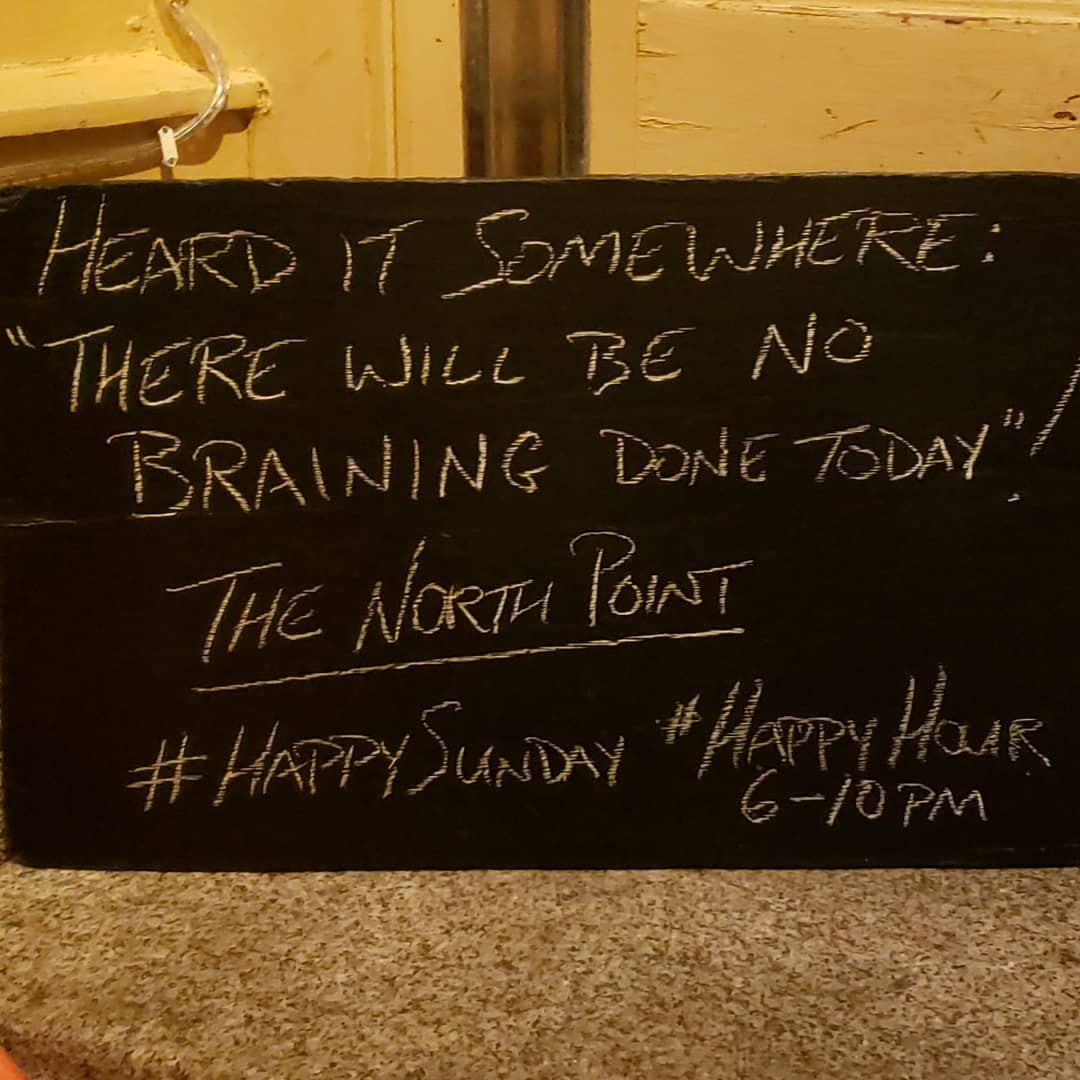 HEARD IT SOMEWHERE:
"THERE WILL BE NO
BRAINING DONE TODAY"!
THE NORTH POINT
#HAPPYSUNDAY #HAPPY HOUR
6-10PM